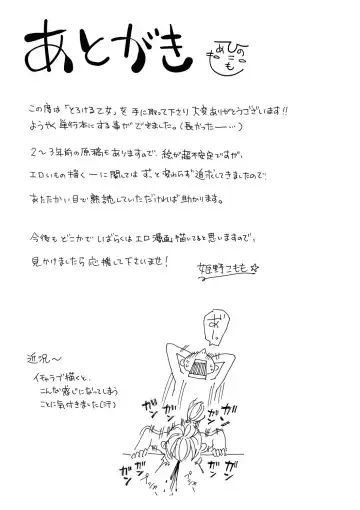 あとがき
ひめのこもも
この度は「とろける乙女」を手に取って下さり大変ありがとうございます!!
ようやく単行本にする事ができました。(長かったー…)
2〜3年前の原稿もありますので、絵が超不安定ですが、
エロいもの描くーに関してはずっと変わらず追求してきましたので、
あたたかい目で熟読していただければ助かります。
今後もどこかでしばらくはエロ漫画描いてると思いますので、
見かけましたら応援して下さいませ!
姫野こもも☆
近況〜
イチャラブ描くと、
こんな感じになってしまう
ことに気付きました(汗)
ガン
ガン
ガン
ガン
ガン
ガン